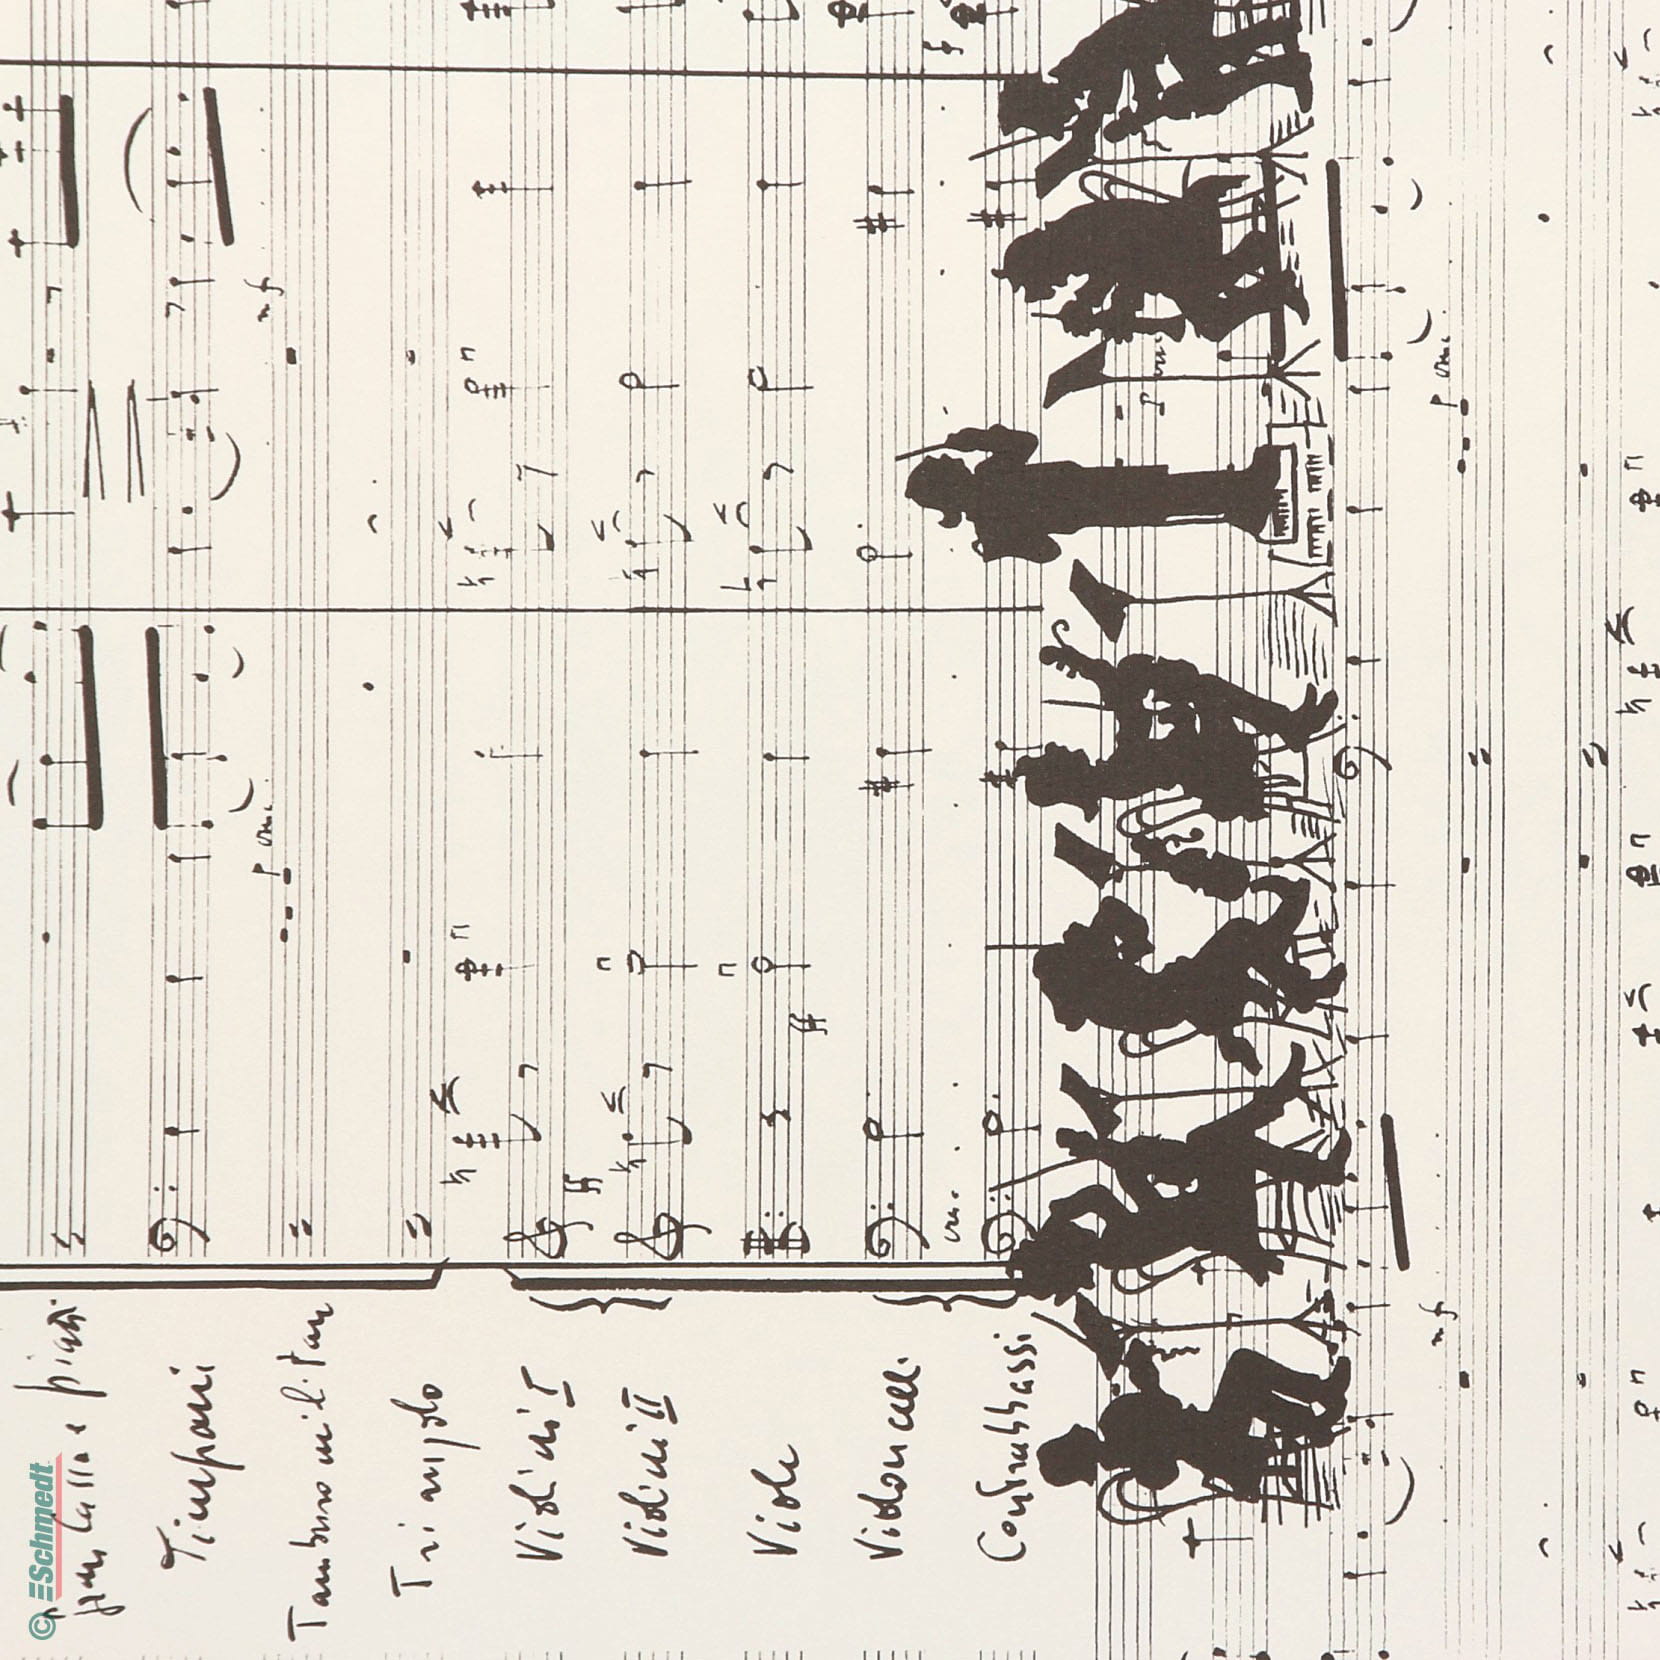 gran Cassa e piatti
Timpani
Tamburo militare
Triangolo
Violini I
Violini II
Viole
Violoncelli
Contrabbassi
mf
ff
ff
mf
© Schmedt